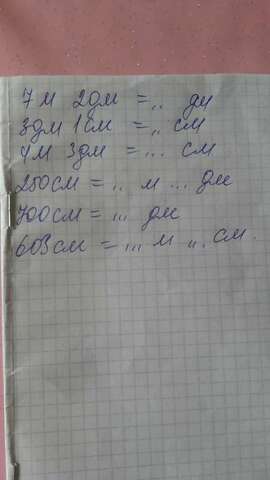 7м 2дм =.. дм
3дм 1см =.. см
4м 3дм =... см
250см = .. м ... дм
700см = ... дм
603см = ... м ... см.